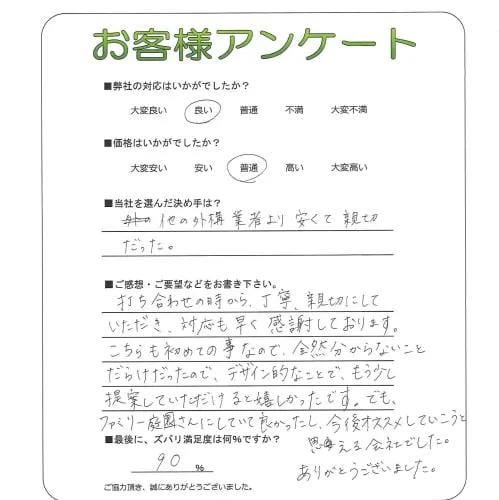 お客様アンケート
■弊社の対応はいかがでしたか?
大変良い 良い 普通 不満 大変不満
■価格はいかがでしたか?
大変安い 安い 普通 高い 大変高い
■当社を選んだ決め手は?
他の外構業者より安くて親切
だった。
■ご感想・ご要望などをお書き下さい。
打ち合わせの時から、丁寧、親切にして
いただき、対応も早く感謝しております。
こちらも初めての事なので、全然分からないこと
だらけだったので、デザイン的なことで、もう少し
提案していただけると嬉しかったです。でも、
ファミリー庭園さんにしていて良かったし、今後オススメしていこうと
思える会社でした。
ありがとうございました。
■最後に、ズバリ満足度は何%ですか?
90 %
ご協力頂き、誠にありがとうございました。